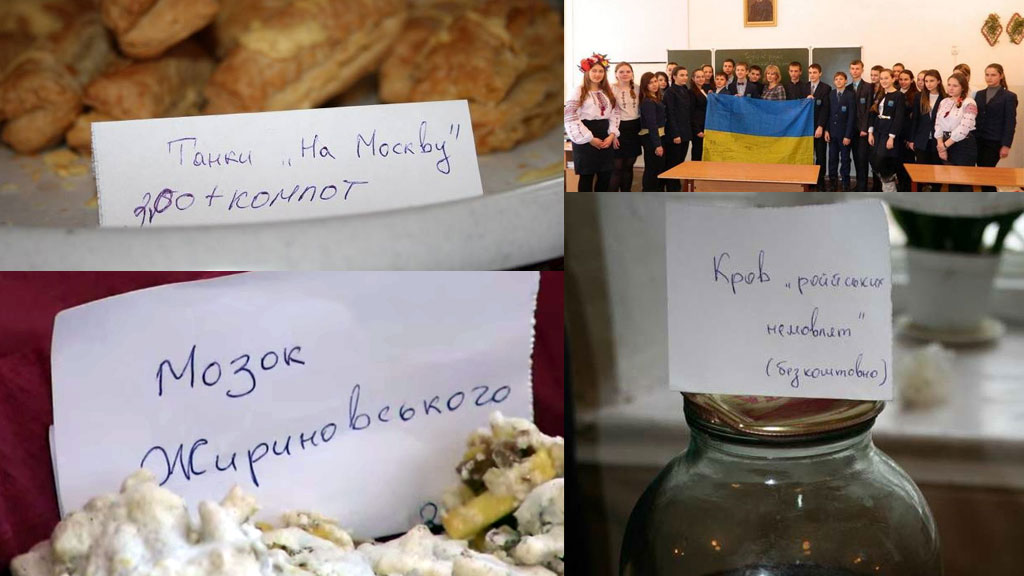 Танки „На Москву"
2,00+компот
Мозок
Жириновського
Кров „російських
немовлят"
(безкоштовно)